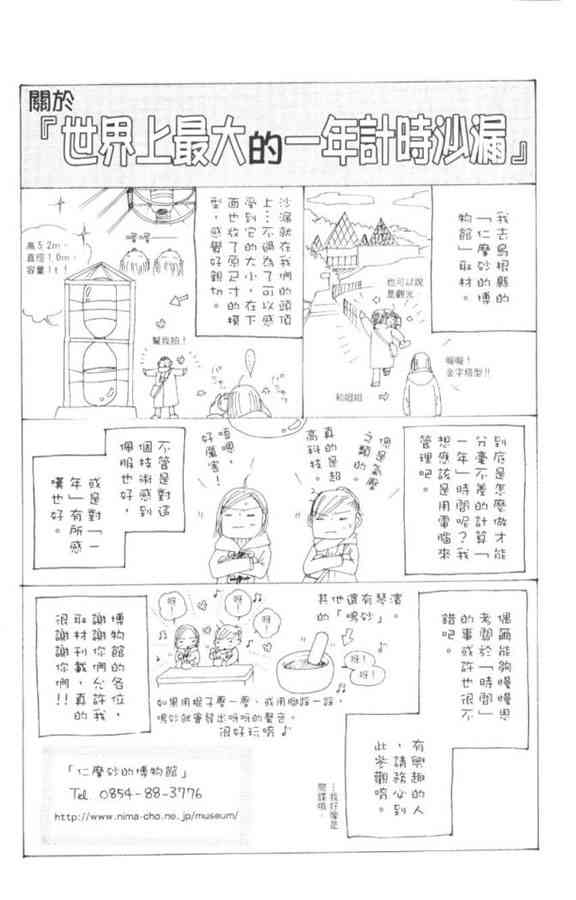 關於
『世界上最大的一年計時沙漏』
我去島根縣的
「仁摩砂的博
物館」取材。
也可以說
是觀光
和姐姐
喔喔!
金字塔型!!
沙漏就在我們的頭頂
上…不過為了可以感
受到它的大小,在下
面也放了原尺寸的模
型,感覺好親切。
嘿嘿
高5.2m,
直徑1.0m,
容量1t!
幫我拍!
到底是怎麼做才能
分毫不差的計算「
一年」時間呢?我
想應該是用電腦來
管理吧。
之類的。
真的是超
高科技。
唔嗯,
好厲害!
不管是對這
個技術感到
佩服也好,
或是對「一
年」有所感
嘆也好。
偶爾能夠慢慢思
考關於「時間」
的事或許也很不
錯吧。
其他還有琴濱
的「鳴砂」。
呀!
呀!
呀!
呀!
呀!
如果用棍子壓一壓,或用腳踩一踩,
鳴砂就會發出呀呀的聲音。
很好玩唷♪
有興趣的人
,請務必到
此參觀唷。
…我好像是
間諜哦。
博物館的各位,
謝謝你們允許我
取材刊載,真的
很謝謝你們!!
「仁摩砂的博物館」
Tel 0854-88-3776
http://www.nima-cho.ne.jp/museum/